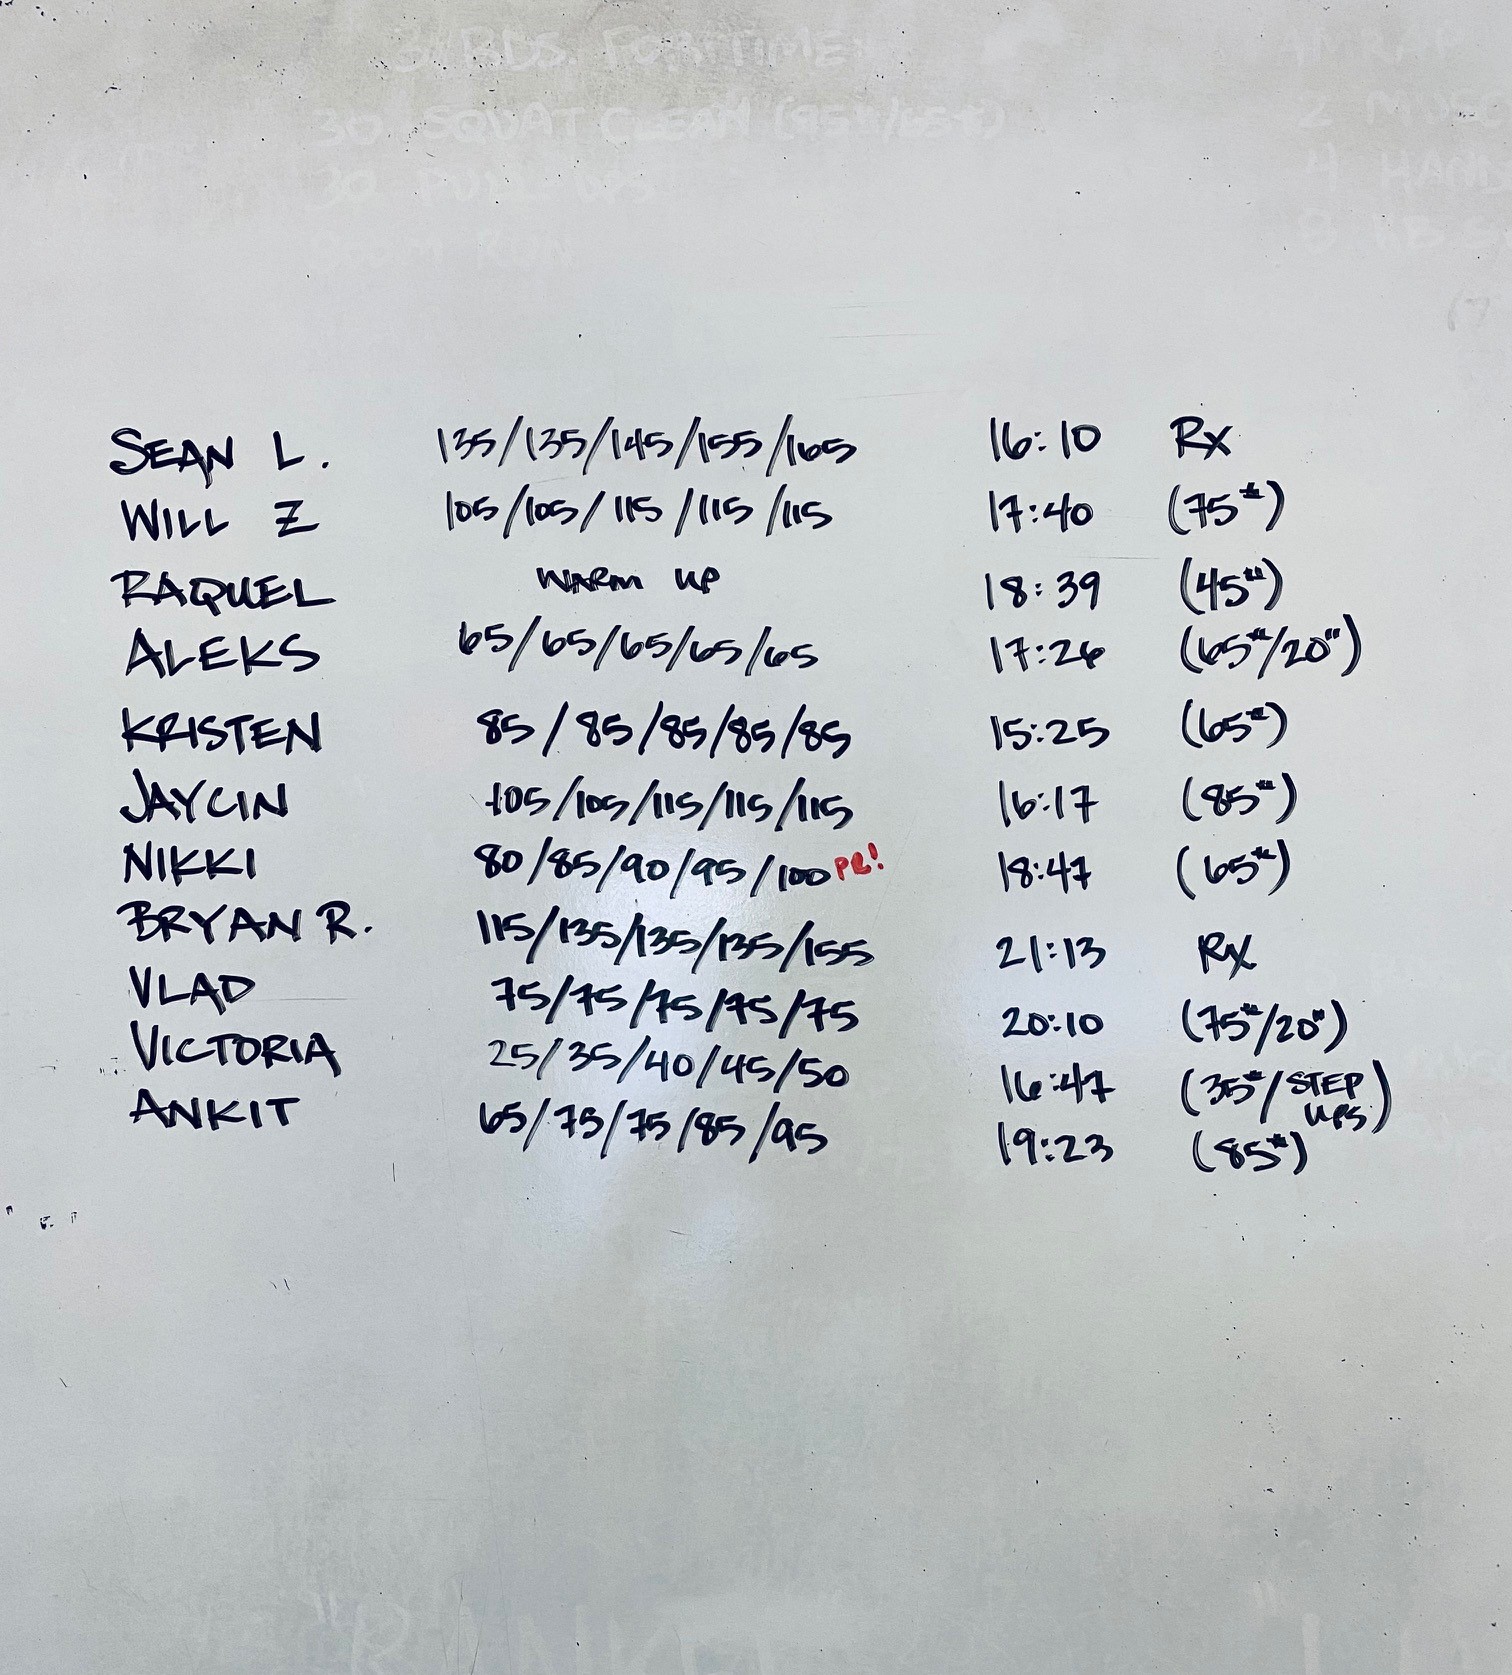 3 RDS. FOR TIME
30 SQUAT CLEAN (95#/65#)
30 PULL-UPS
RUN
SEAN L. 135/135/145/155/165 16:10 Rx
WILL Z 105/105/115/115/115 17:40 (75#)
RAQUEL WARM UP 18:39 (45#)
ALEKS 65/65/65/65/65 17:26 (65#/20")
KRISTEN 85/85/85/85/85 15:25 (65#)
JAYCIN 105/105/115/115/115 16:17 (85#)
NIKKI 80/85/90/95/100 PR! 18:47 (65#)
BRYAN R. 115/135/135/135/155 21:13 Rx
VLAD 75/75/75/75/75 20:10 (75#/20")
VICTORIA 25/35/40/45/50 16:47 (35#/STEP UPS)
ANKIT 65/75/75/85/95 19:23 (85#)